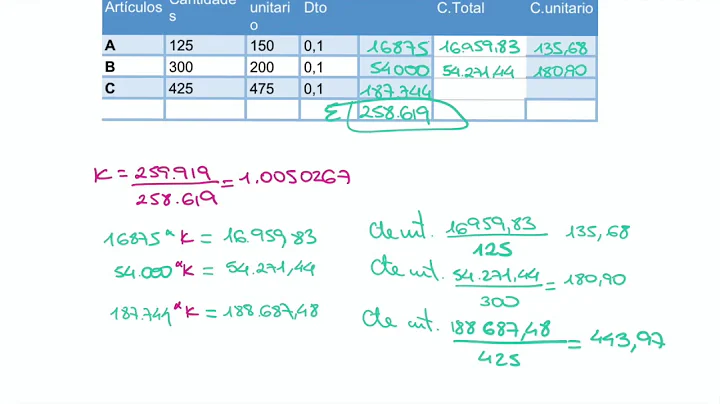 Artículos Cantidade
s unitari
o Dto C.Total C.unitario
A 125 150 0,1 16875 16.959,83 135,68
B 300 200 0,1 54000 54.271,44 180,90
C 425 475 0,1 187.744
Σ 258.619
K = 259.919 / 258.619 = 1.0050267
16875 * K = 16.959,83
54.000 * K = 54.271,44
187.744 * K = 188.687,48
Cte unt. 16959,83 / 125 135,68
Cte unt. 54.271,44 / 300 = 180,90
Cte unt. 188 687,48 / 425 = 443,97